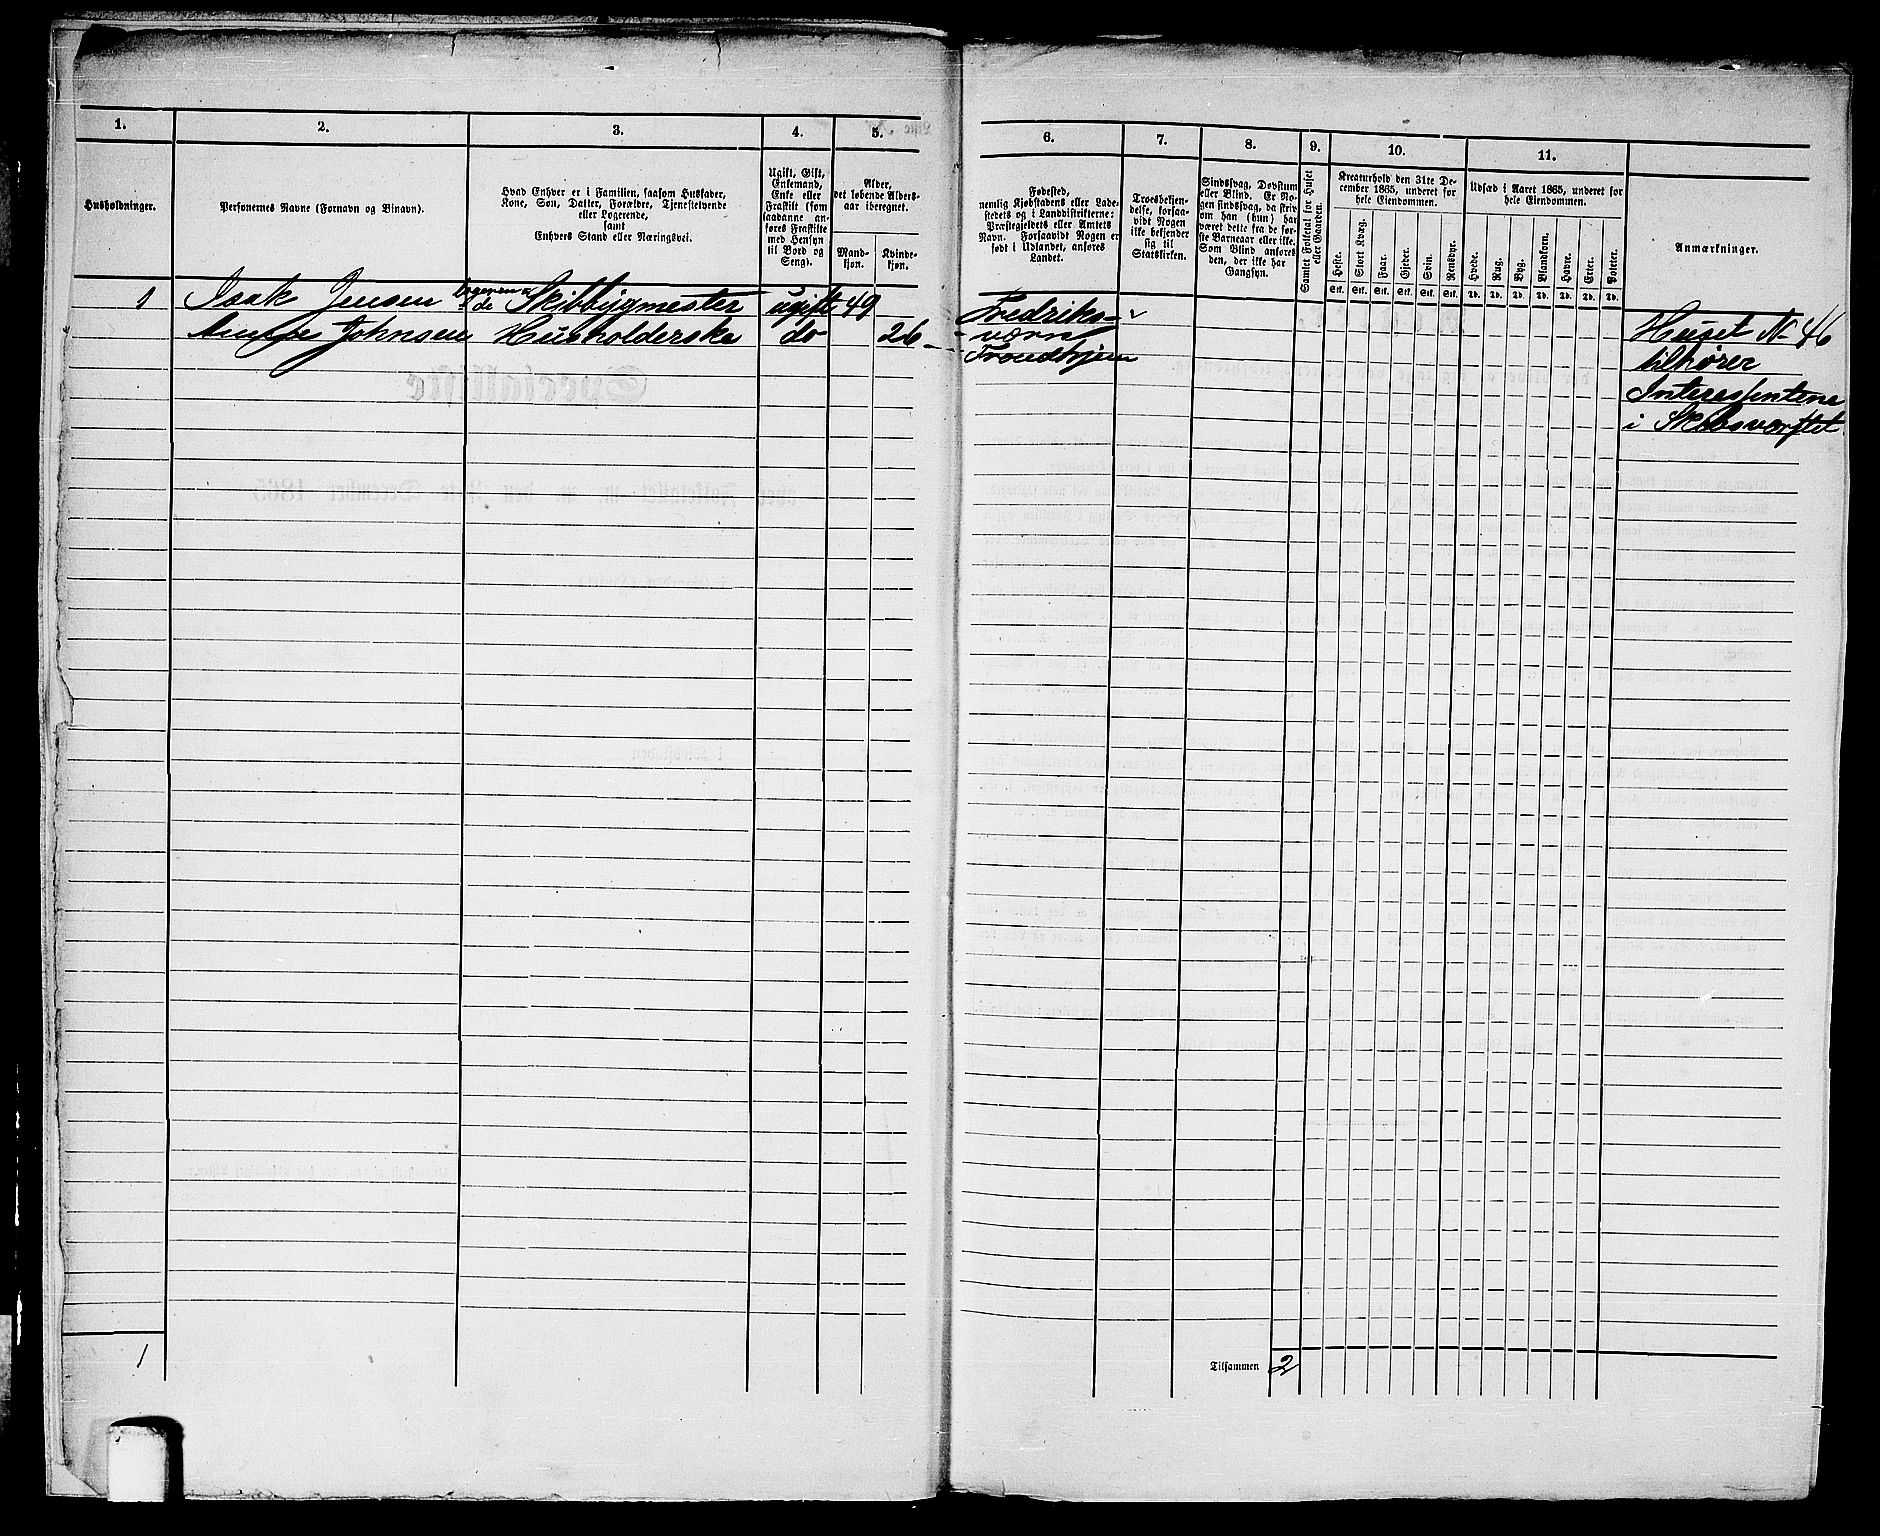 1. 2. 3. 4. 5.
Husholdninger.
Personernes Navne (Fornavn og Binavn).
Hvad Enhver er i Familien, saasom Husfader,
Kone, Søn, Datter, Forældre, Tjenestetyende
eller Logerende,
samt
Enhvers Stand eller Næringsvei.
Ugift, Gift,
Enkemand,
Enke eller
Fraskilt (som
saadanne an-
føres Fraskilte
med Hensyn
til Bord og
Seng).
Alder,
det løbende Alders-
aar iberegnet.
Mand-
kjøn.
Kvinde-
kjøn.
1 Isak Jensen Skibbygmester ugift 49
Johnsen Husholderske do 26
1
6. 7. 8. 9. 10. 11.
Fødested,
nemlig Kjøbstadens eller Lade-
stedets og i Landdistrikterne:
Præstegjeldets eller Amtets
Navn. Forsaavidt Nogen er
født i Udlandet, anføres
Landet.
Troesbekjen-
delse, forsaa-
vidt Nogen
ikke bekjender
sig til
Statskirken.
Sindssvag, Døvstum
eller Blind. Er No-
gen sindssvag, da skriv
om han (hun) har
været dette fra de før-
ste Barneaar eller ikke.
Som Blind anføres
den, der ikke har
Gangsyn.
Samlet Folketal for Huset
eller Gaarden.
Kreaturhold den 31te De-
cember 1865, underet for
hele Eiendommen.
Heste. Stort Kvæg. Faar. Gjeder. Svin. Rensdyr.
Stk. Stk. Stk. Stk. Stk. Stk.
Udsæd i Aaret 1865, underet for
hele Eiendommen.
Hvede. Rug. Byg. Blandkorn. Havre. Erter. Poteter.
Td. Td. Td. Td. Td. Td. Td.
Anmærkninger.
Fredriks-
værn
Trondhjem
Huset N 46
tilhører
Interessentene
i Skibsværftet.
Tilsammen 2